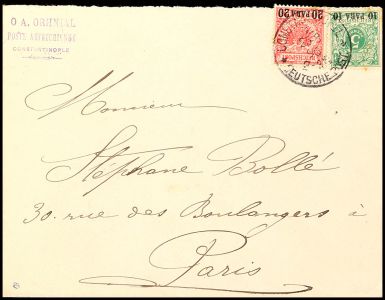 O A. OHINIAL
POSTE AUTRICHIENNE
CONSTANTINOPLE
20 PARA 20
10 PARA 10
DEUTSCHE
Monsieur
Stéphane Bollé
30. rue des Boulangers à
Paris